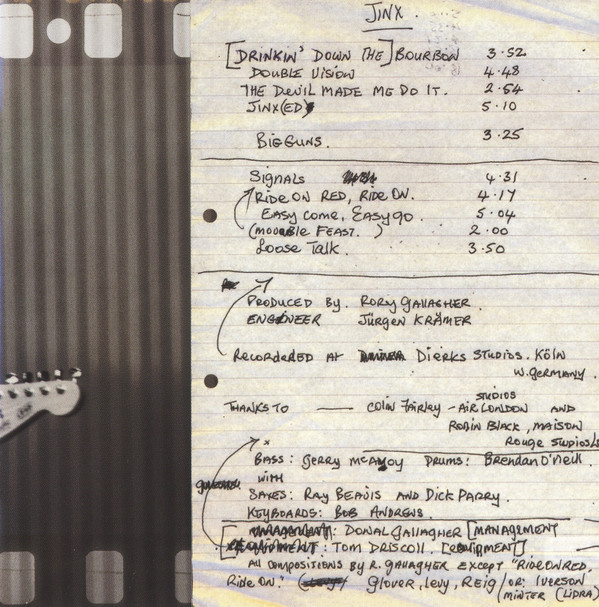 JINX.
[DRINKIN' DOWN THE] BOURBON 3.52
DOUBLE VISION 4.48
THE DEVIL MADE ME DO IT. 2.54
JINX(ED) 5.10
BIG GUNS. 3.25
SIGNALS 4.31
RIDE ON RED, RIDE ON. 4.17
EASY COME, EASY GO. 5.04
(MOVABLE FEAST. ) 2.00
LOOSE TALK. 3.50
PRODUCED BY. RORY GALLAGHER.
ENGINEER JÜRGEN KRÄMER
RECORDERED AT DIERKS STUDIOS. KÖLN
W.GERMANY.
STUDIOS
THANKS TO — COLIN FAIRLEY - AIR LONDON AND
ROBIN BLACK, MAISON
ROUGE STUDIOS/L
BASS: GERRY MCAVOY DRUMS: BRENDAN O'NEILL.
WITH
SAXES: RAY BEAVIS AND DICK PARRY.
KEYBOARDS: BOB ANDREWS
: DONAL GALLAGHER [MANAGEMENT
: TOM DRISCOLL, [EQUIPMENT]
ALL COMPOSITIONS BY R. GALLAGHER EXCEPT "RIDE ON RED,
RIDE ON." GLOVER, LEVY, REIG / OR: IVERSON
MINTER (LIDRA)